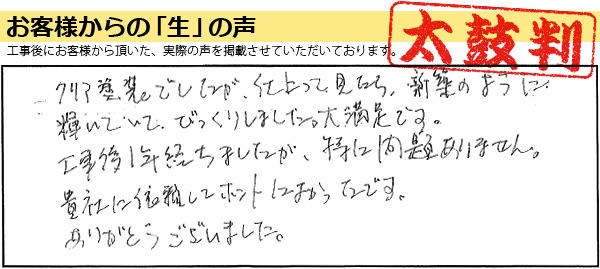 お客様からの「生」の声
太鼓判
工事後にお客様から頂いた、実際の声を掲載させていただいております。
クリア塗装でしたが、仕上って見たら、新築のように
輝いていて、びっくりしました。大満足です。
工事後1年経ちましたが、特に問題ありません。
貴社に依頼してホントによかったです。
ありがとうございました。